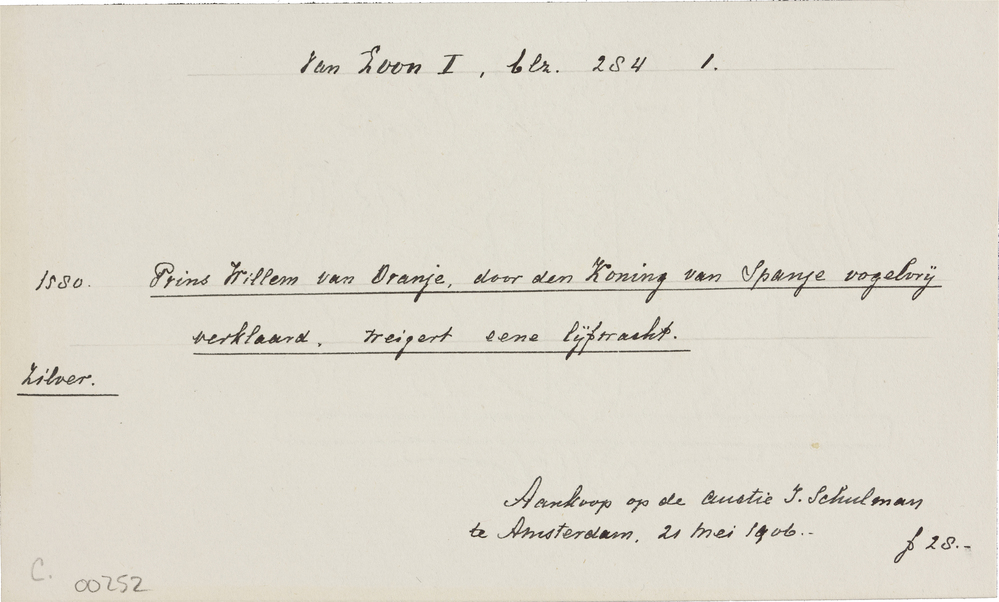 Van Loon I, blz. 284 1.
1580. Prins Willem van Oranje, door den Koning van Spanje vogelvrij
verklaard, weigert eene lijfwacht.
Zilver.
Aankoop op de auctie J. Schulman
te Amsterdam, 21 Mei 1906.-
f 28.-
C. 00252